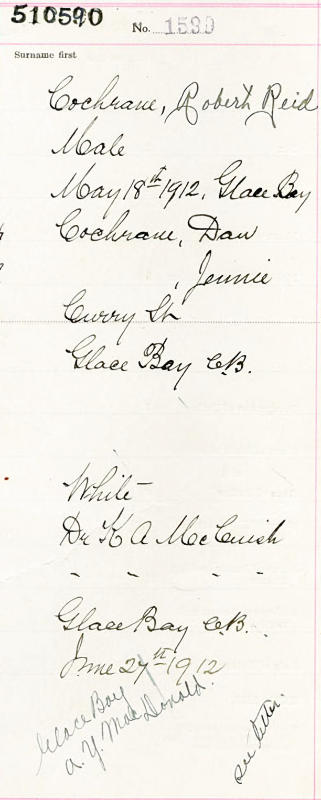 510590
No. 1539
Surname first
Cochrane, Robert Reid
Male
May 18th 1912, Glace Bay
Cochrane, Dan
, Jennie
Curry St
Glace Bay C.B.
White
Dr K A McCuish
" " " "
Glace Bay C.B.
June 27th 1912
Glace Bay
A. Y. MacDonald.
see letter.